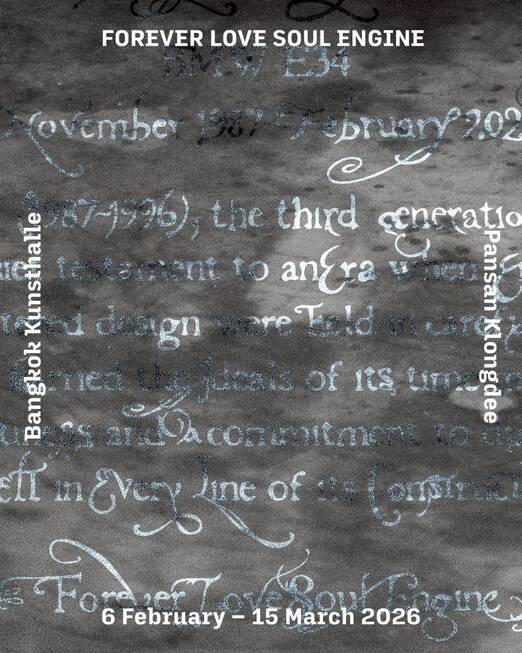 FOREVER LOVE SOUL ENGINE
BMW E34
November 1987 – February 202
(1987-1996), the third generatio
testament to an Era when
design were held in
the ideals of its time
and a commitment to
in Every Line of its Construct
Forever Love Soul Engine
6 February – 15 March 2026
Bangkok Kunsthalle
Pansan Klongdee